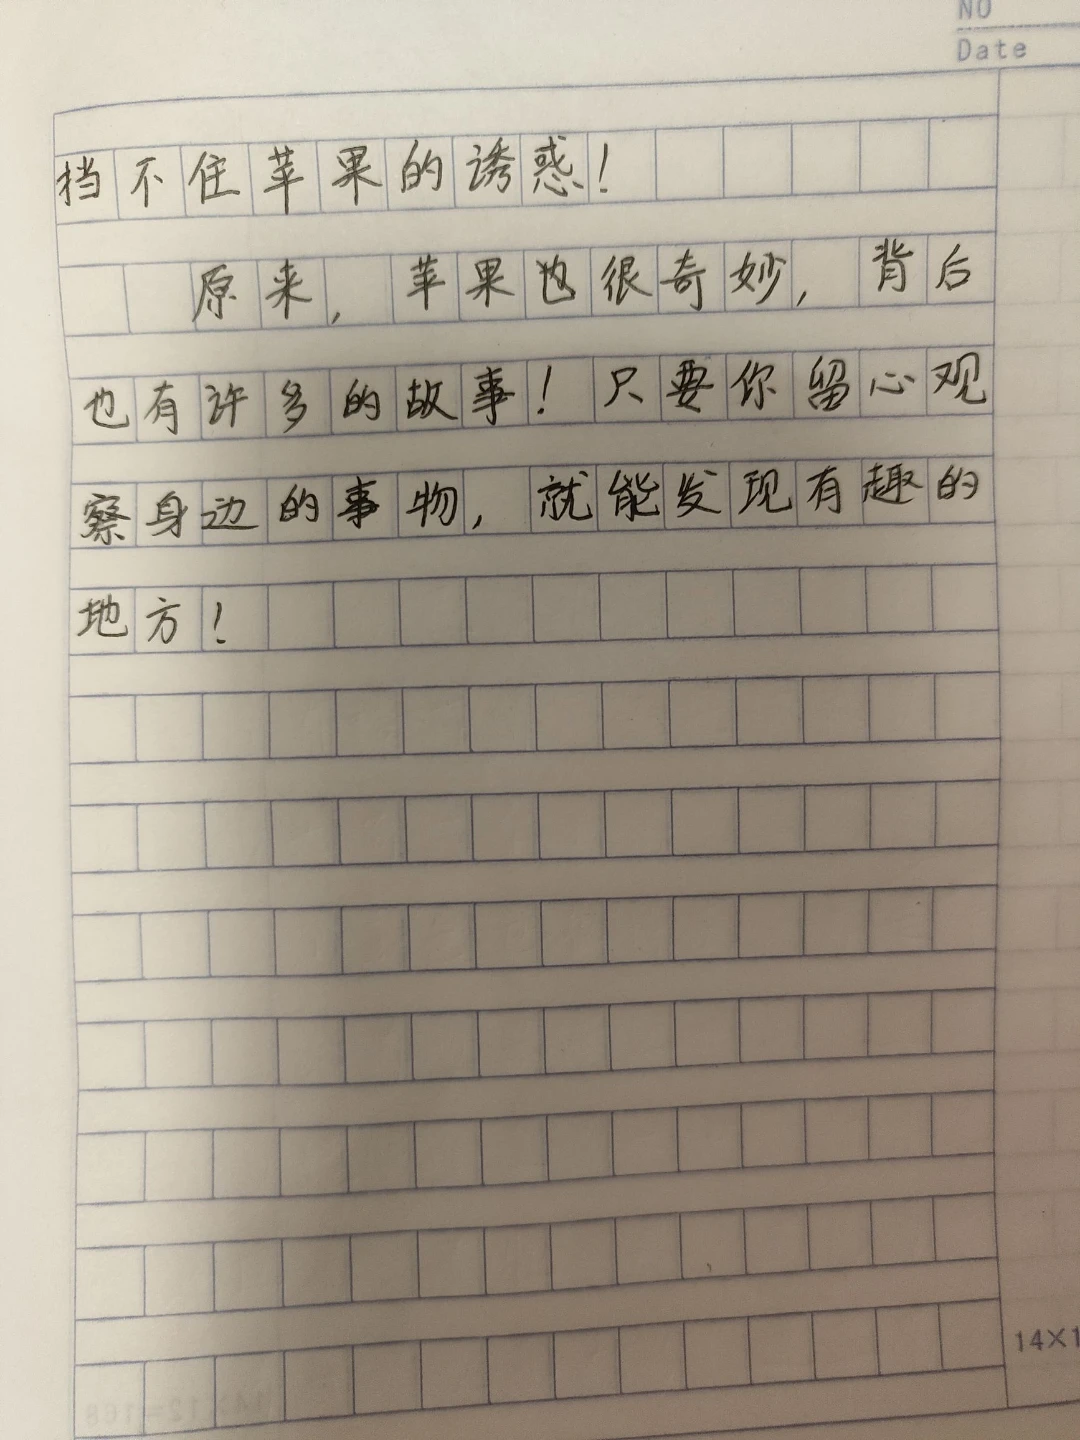 NO
Date
挡不住苹果的诱惑！
原来，苹果也很奇妙，背后
也有许多的故事！只要你留心观
察身边的事物，就能发现有趣的
地方！
14×1